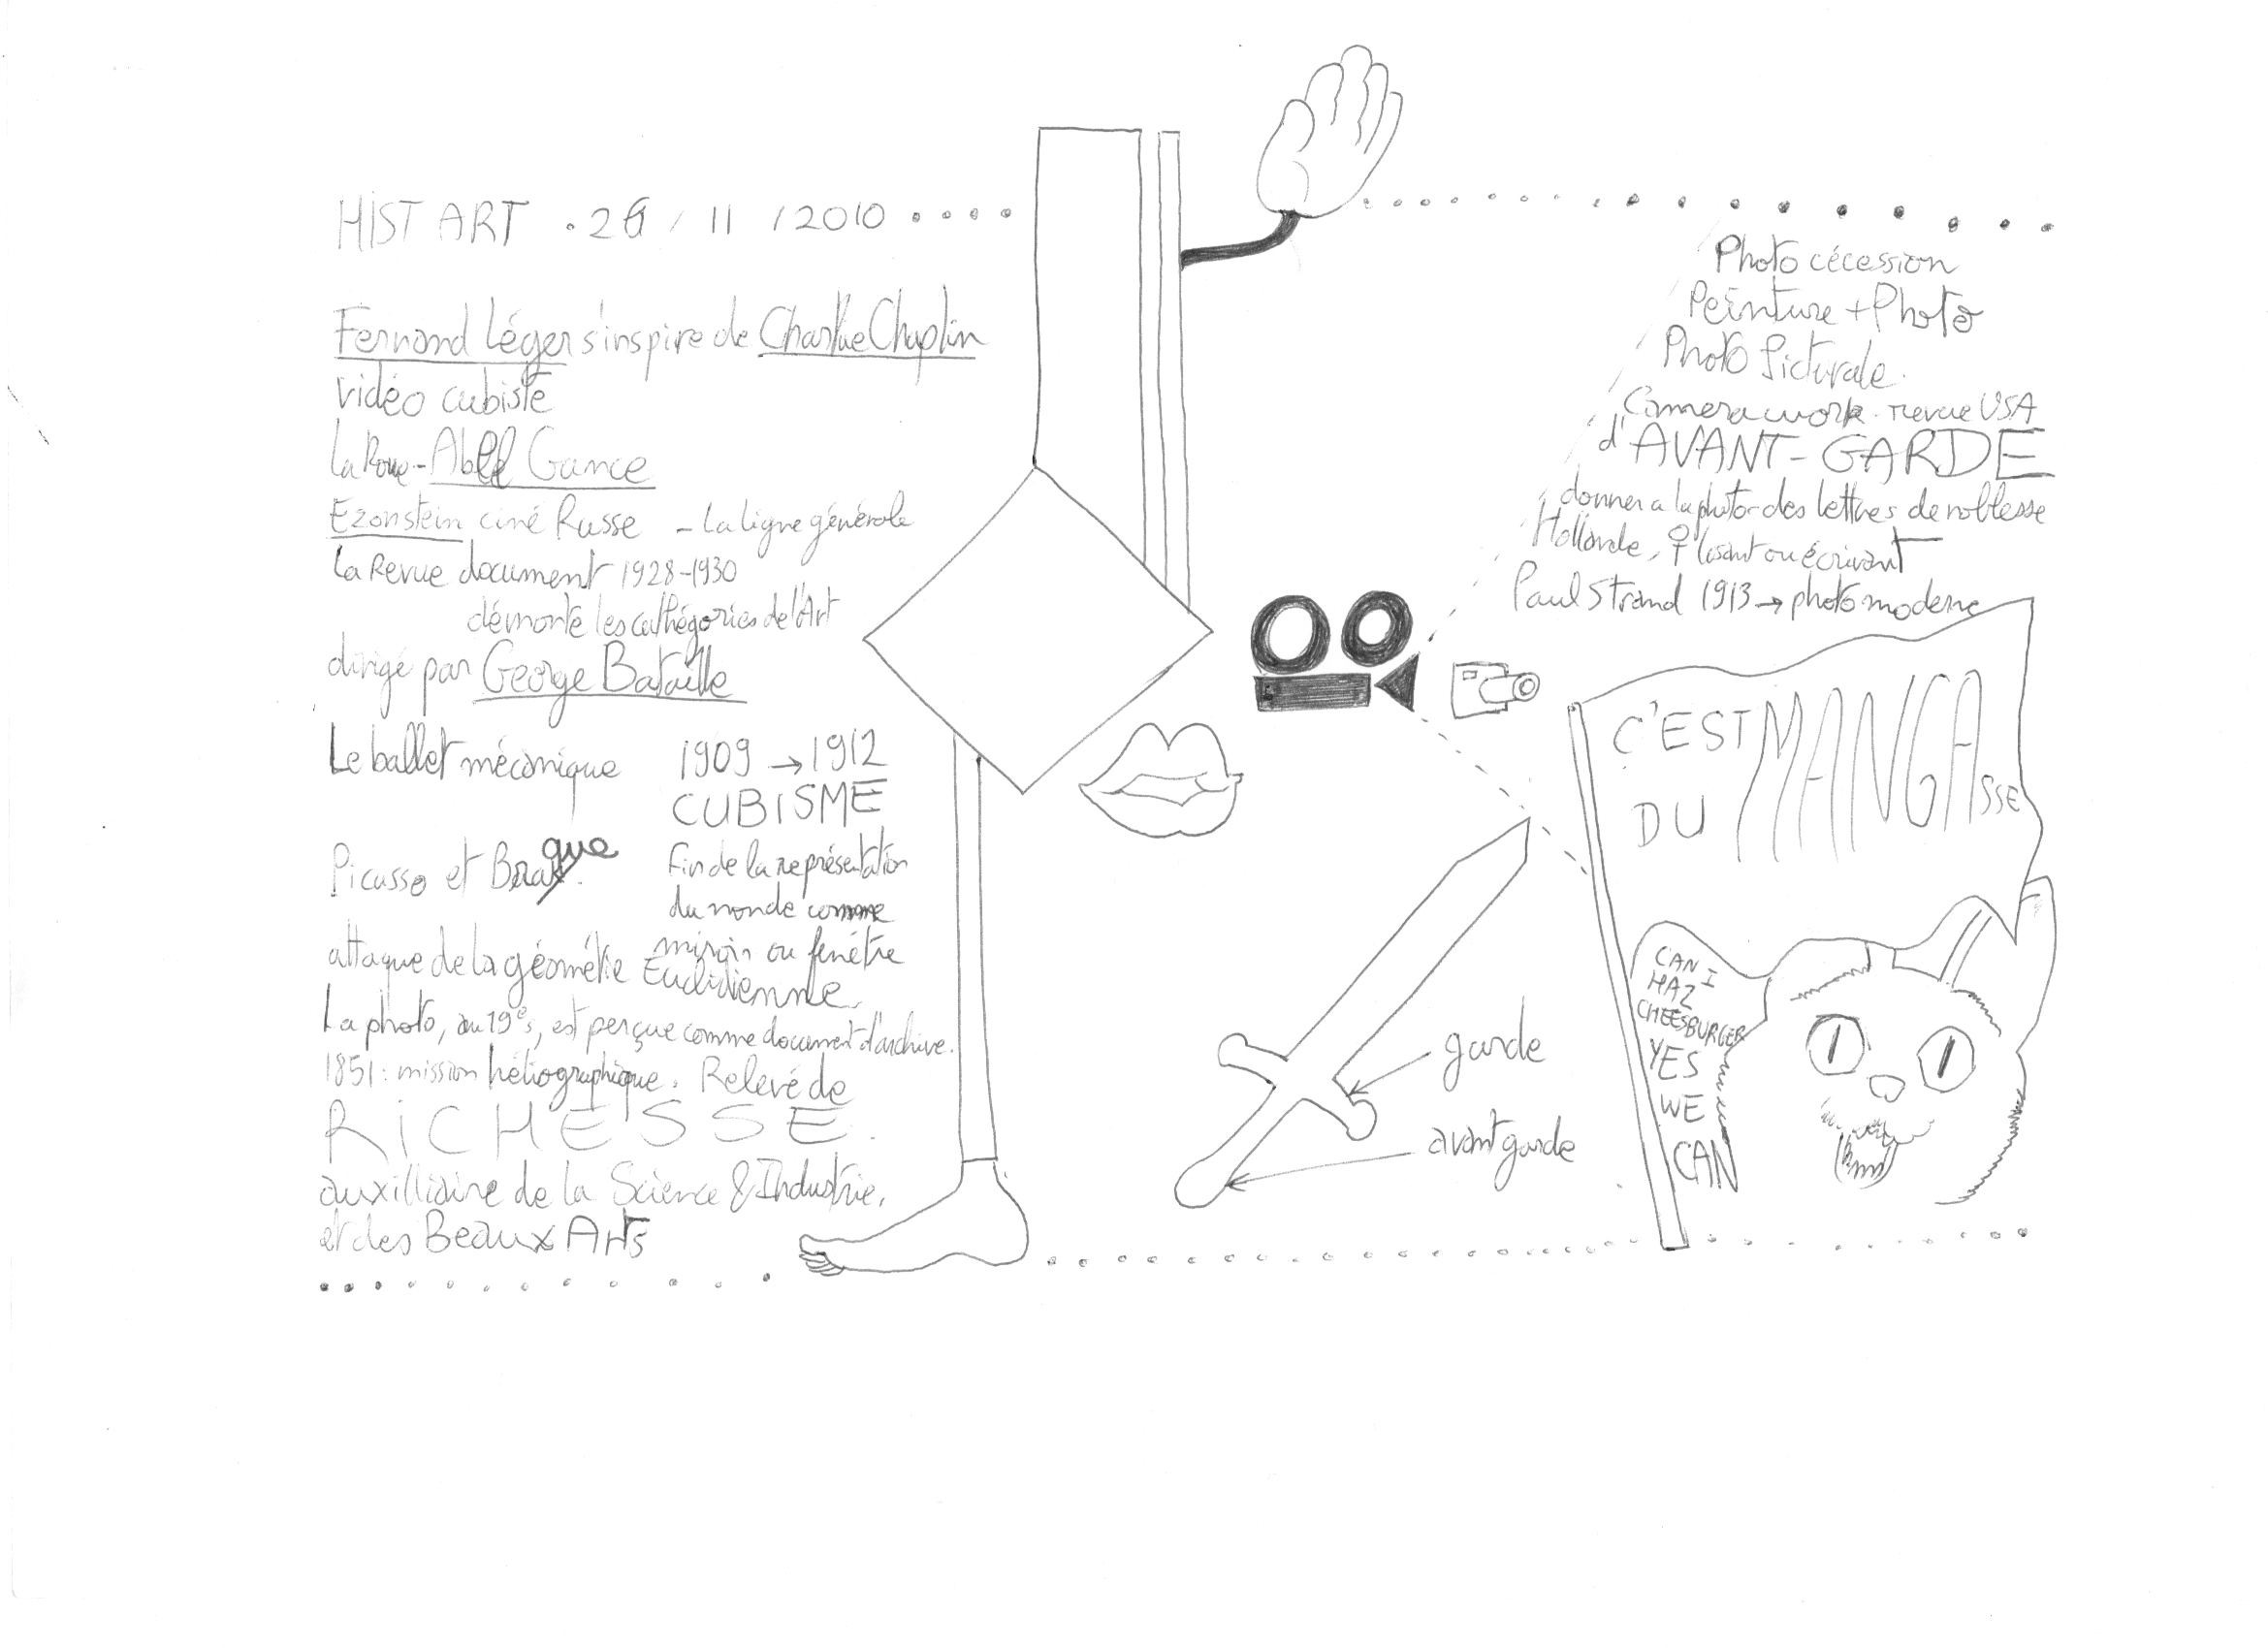 HIST ART . 26 / 11 / 2010
Fernand Léger s'inspire de Charlie Chaplin
vidéo cubiste
La Roue - Abel Gance
Ezonstein ciné Russe - La ligne générale
La Revue document 1928-1930
démonte les cathégories de l'Art
dirigé par George Bataille
Le ballet mécanique
1909 → 1912
CUBISME
Picasso et Braque
Fin de la représentation
du monde comme
miroir ou fenêtre
attaque de la géométrie Euclidienne
La photo, au 19e s, est perçue comme document d'archive.
1851 : mission héliographique. Relevé de
RICHESSE.
auxilliaire de la Science & Industrie,
et des Beaux Arts
Photo cécession
Peinture + Photo
Photo Picturale.
Camera work - revue USA
d'AVANT-GARDE
donner a la photo des lettres de noblesse
Hollande, ♀ lisant ou écrivant
Paul Strand 1913 → photo moderne
C'EST
DU MANGAsse
CAN I
HAZ
CHEESBURGER
YES
WE
CAN
garde
avant garde